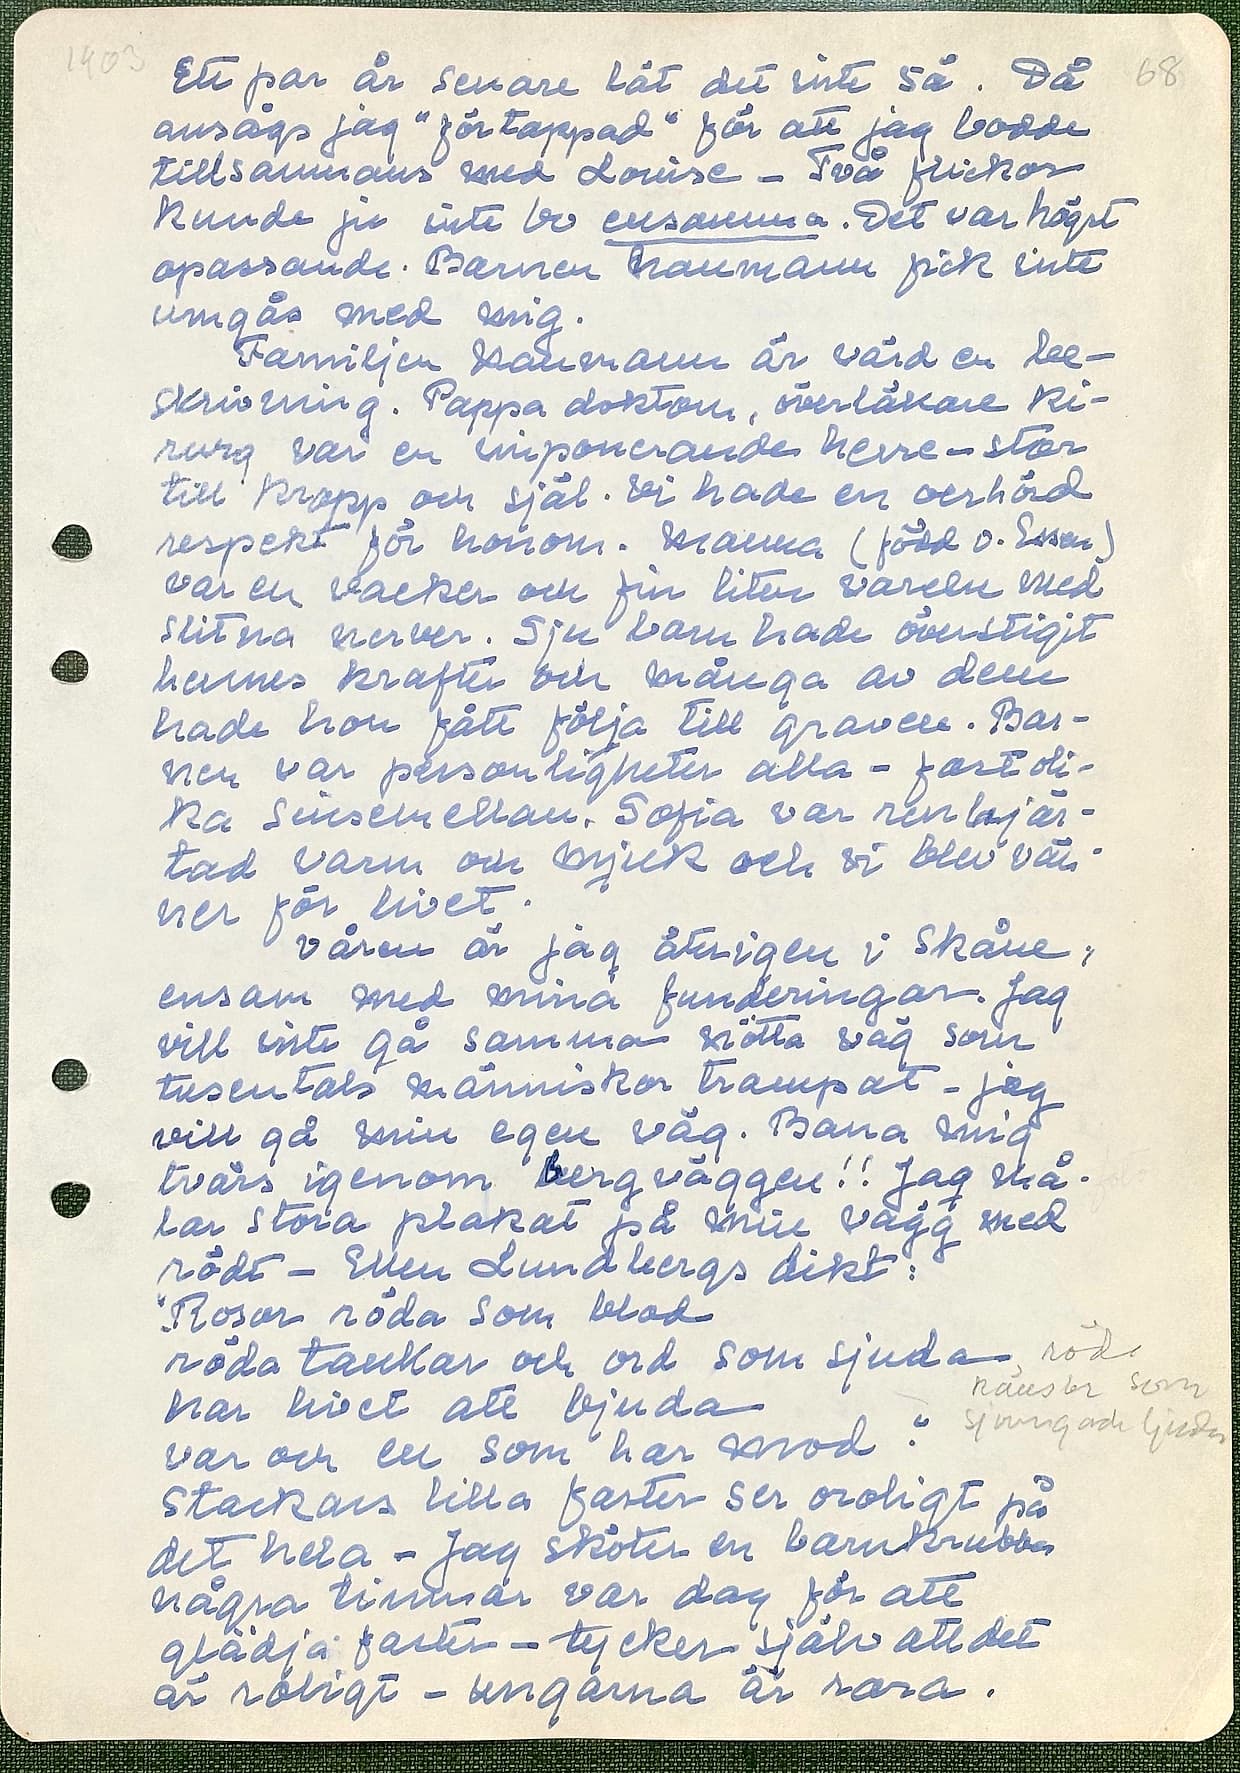 1903
68
Ett par år senare lät det inte så. Då
ansågs jag "förtappad" för att jag bodde
tillsammans med Louise – Två flickor
kunde ju inte bo ensamma. Det var högst
opassande. Barnen Naumann fick inte
umgås med mig.
Familjen Naumann är värd en be-
skrivning. Pappa doktorn, överläkare ki-
rurg var en imponerande herre – stor
till kropp och själ. Vi hade en oerhörd
respekt för honom. Mamma (född v. Essen)
var en vacker och fin liten varelse med
slitna nerver. Sju barn hade överstigit
hennes krafter och många av dem
hade hon fått följa till graven. Bar-
nen var personligheter alla – fast oli-
ka sinsemellan. Sofia var renhjär-
tad varm och mjuk och vi blev vän-
ner för livet.
Våren är jag återigen i Skåne,
ensam med mina funderingar. Jag
vill inte gå samma nötta väg som
tusentals människor trampat – jag
vill gå min egen väg. Bana mig
tvärs igenom bergväggen!! Jag må-
lar stora plakat på min vägg med
rödt – Ellen Lundbergs dikt:
"Rosor röda som blod
röda tankar och ord som sjuda, röda
har livet att bjuda
var och en som har mod"
känslor som
sjunga och ljuda
Stackars lilla faster ser oroligt på
det hela – Jag sköter en barnkrubba
några timmar var dag för att
glädja faster – tycker själv att det
är roligt – ungarna är rara.